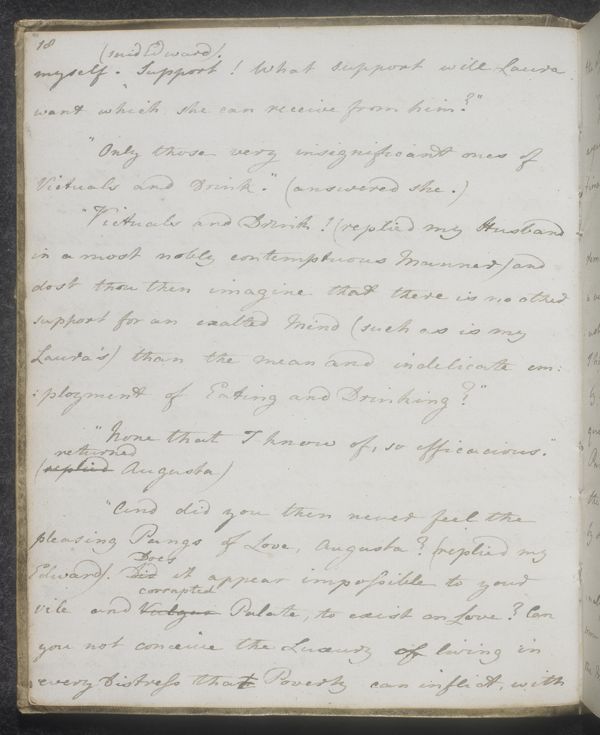 18
(said Edward).
myself. "Support! What Support will Laura
want which she can receive from him?"
"Only those very insignificant ones of
Victuals and Drink." (answered she.)
"Victuals and Drink! (replied my Husband
in a most nobly contemptuous Manner) and
dost thou then imagine that there is no other
support for an exalted Mind (such as is my
Laura's) than the mean and indelicate em:
:ployment of Eating and Drinking?"
"None that I know of, so efficacious."
returned
(replied Augusta)
"And did you then never feel the
pleasing Pangs of Love, Augusta? (replied my
Does
Edward). Did it appear impossible to your
corrupted
vile and Vulgar Palate, to exist on Love? Can
you not conceive the Luxury of living in
every Distress that Poverty can inflict, with